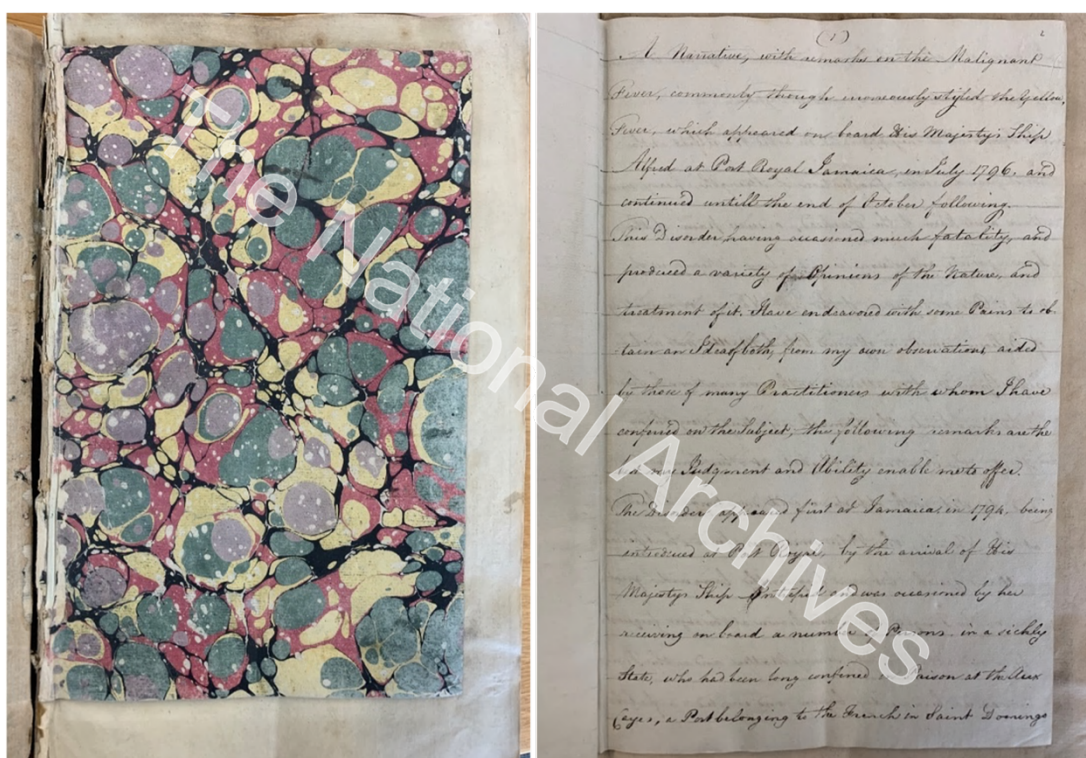 The National Archives
(1)
2
A Narrative, with remarks on the Malignant
Fever, commonly though erroneously styled the Yellow,
Fever, which appeared on board His Majesty's Ship
Alfred at Port Royal Jamaica, in July 1796. and
continued untill the end of October following.
This Disorder having occasioned much fatality, and
produced a variety of Opinions of the Nature, and
treatment of it. I have endeavored with some Pains to ob-
tain an Idea of both, from my own observations aided
by those of many Practitioners with whom I have
conferred on the Subject, the following remarks are the
my Judgment and Ability enable me to offer.
The Disorder appeared first at Jamaica in 1794. being
introduced at Port Royal, by the arrival of His
Majesty's Ship Intrepid and was occasioned by her
receiving on board a number of Persons in a sickly
State, who had been long confined Prison at the Aux
Cayes, a Port belonging to the French in Saint Domingo